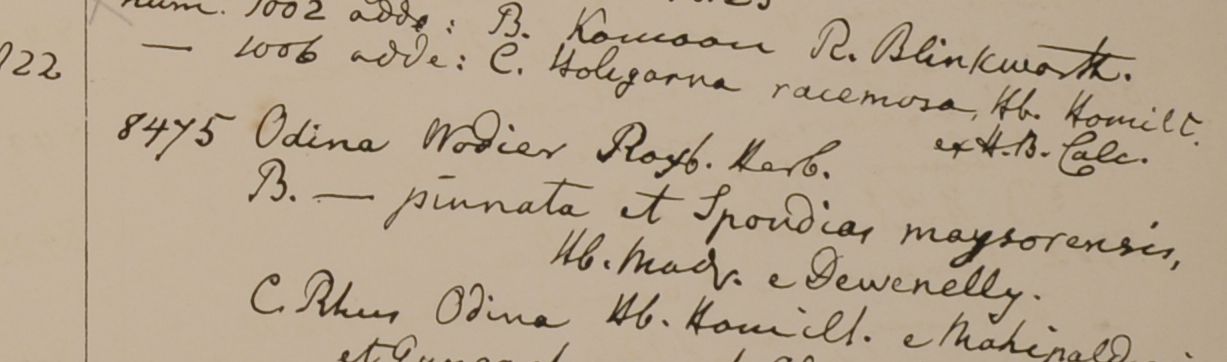 num. 1002 adde: B. Kamaon R. Blinkworth.
122 — 1006 adde: C. Holigarna racemosa, Hb. Hamilt.
ex H.B. Calc.
8475 Odina Wodier Roxb. Herb.
B. — pinnata et Spondias maysorensis,
Hb. Madr. e Dewenelly.
C. Rhus Odina Hb. Hamilt. e
et